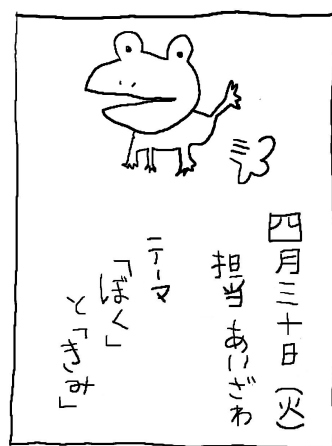 四月三十日(火)
担当 あいざわ
テーマ
「ぼく」
と「きみ」